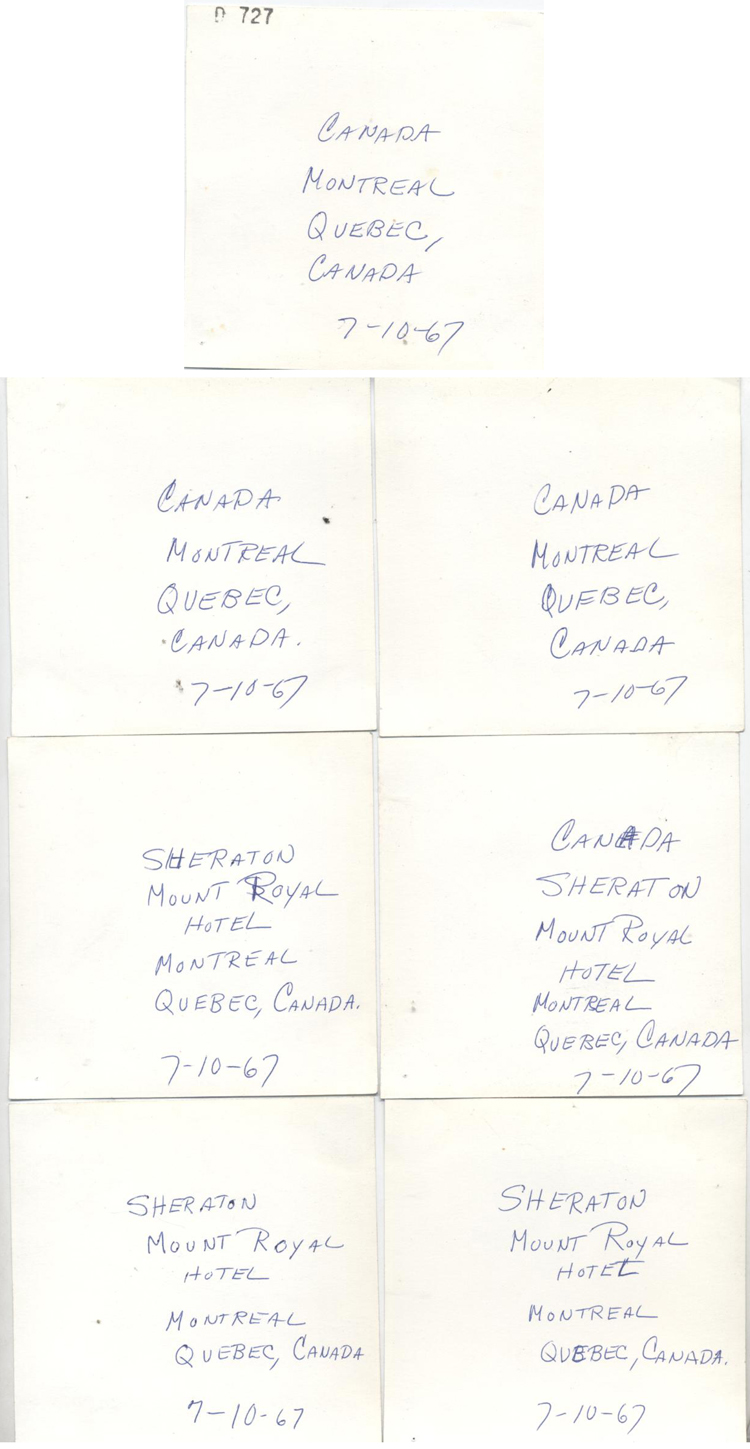 D 727
CANADA
MONTREAL
QUEBEC,
CANADA
7-10-67
CANADA
MONTREAL
QUEBEC,
CANADA.
7-10-67
CANADA
MONTREAL
QUEBEC,
CANADA
7-10-67
SHERATON
MOUNT ROYAL
HOTEL
MONTREAL
QUEBEC, CANADA.
7-10-67
CANADA
SHERATON
MOUNT ROYAL
HOTEL
MONTREAL
QUEBEC, CANADA
7-10-67
SHERATON
MOUNT ROYAL
HOTEL
MONTREAL
QUEBEC, CANADA
7-10-67
SHERATON
MOUNT ROYAL
HOTEL
MONTREAL
QUEBEC, CANADA.
7-10-67